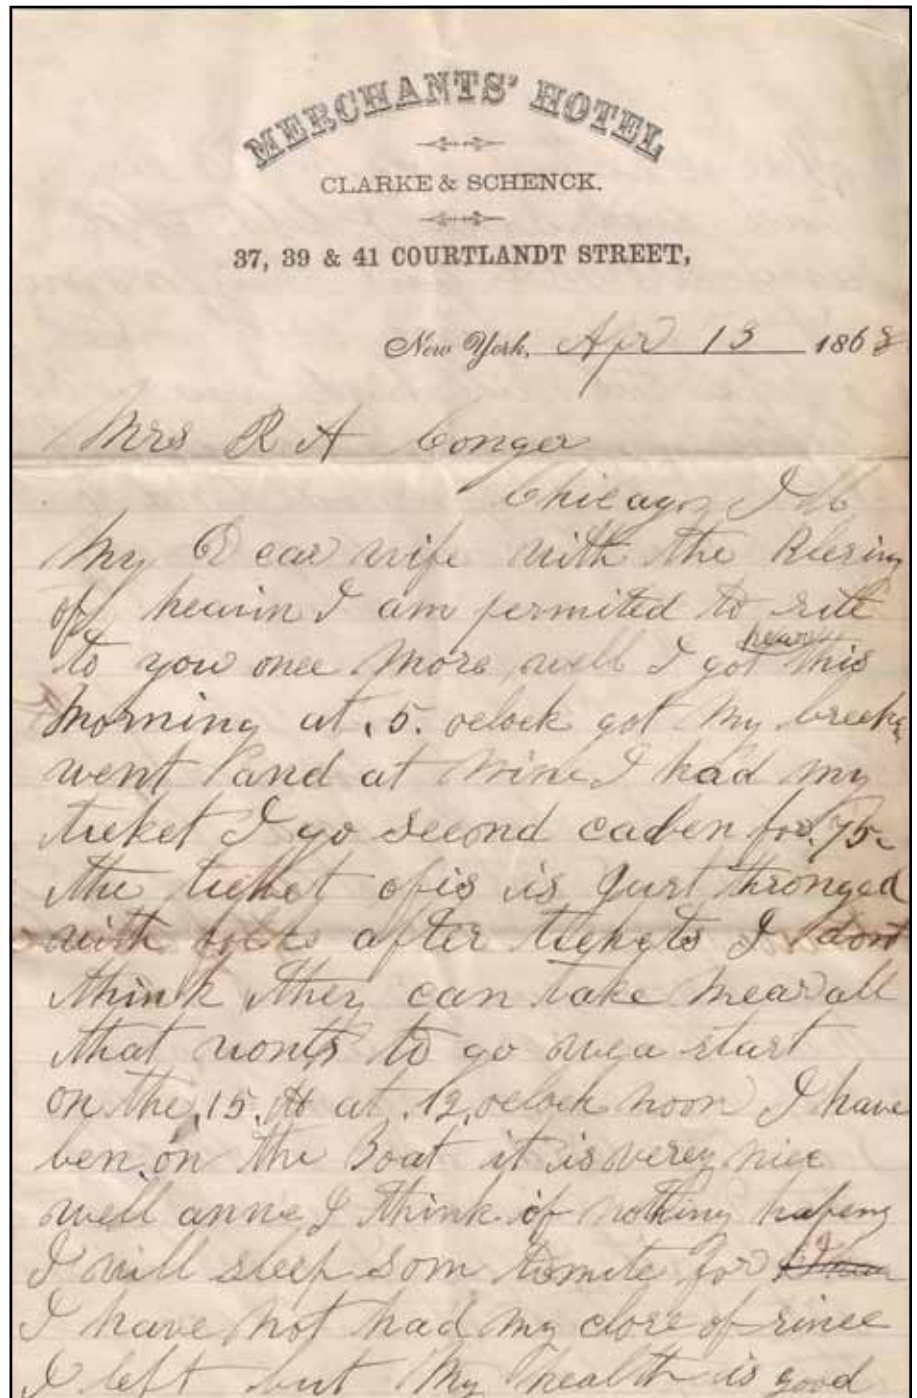 MERCHANTS' HOTEL
CLARKE & SCHENCK.
37, 39 & 41 COURTLANDT STREET,
New York, Apr 13 1868
Mrs R A Conger
Chicago Ill
My Dear wife with the Blesing
of heavin I am permited to rite
to you once more well I got hear this
morning at .5. oclock got my
went and at nine I had my
ticket I go second caben for .75.
the ticket ofis is Just thronged
with folks after tickets I dont
think they can take near all
that wonts to go wea start
on the .15.th at .12. oclock noon I have
ben on the Boat it is verey nice
well anne I think if nothing hapens
I will sleep som tonite for
I have not had my close of since
I left but my health is good